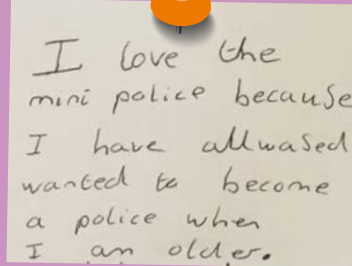 I love the
mini police because
I have allwased
wanted to become
a police when
I an older.